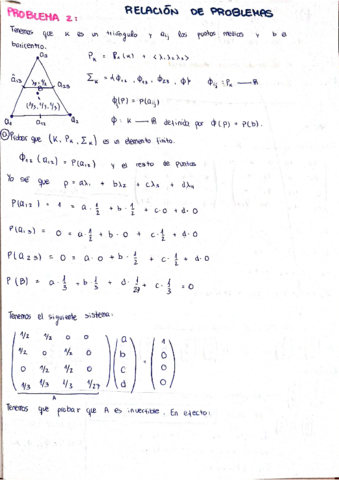 RELACIÓN DE PROBLEMAS
PROBLEMA 2:
Tenemos que K es un triángulo y aij los puntos medios y b es
baricentro.
a3
a13
a23
(1/3, 1/3, 1/3)
a1
a12
a2
Pk = P1(K) + <λ1λ2λ3>
Σk = {Φ12, Φ13, Φ23, Φ}
Φij : Pk → ℝ
Φ(P) = P(aij)
Φ : K → ℝ definida por Φ(P) = P(b).
a) Probar que (K, Pk, Σk) es un elemento finito.
Φ12 (a12) = P(a12) y es resto de puntos
Yo sé que p = aλ1 + bλ2 + cλ3 + dλ4
P(a12) = 1 = a·1/2 + b·1/2 + c·0 + d·0
P(a13) = 0 = a·1/2 + b·0 + c·1/2 + d·0
P(a23) = 0 = a·0 + b·1/2 + c·1/2 + d·0
P(B) = a·1/3 + b·1/3 + d·1/27 + c·1/3 = 0
Tenemos el siguiente sistema:
1/2 1/2 0 0 a 1
1/2 0 1/2 0 b = 0
0 1/2 1/2 0 c 0
1/3 1/3 1/3 1/27 d 0
A
Tenemos que probar que A es invertible. En efecto: